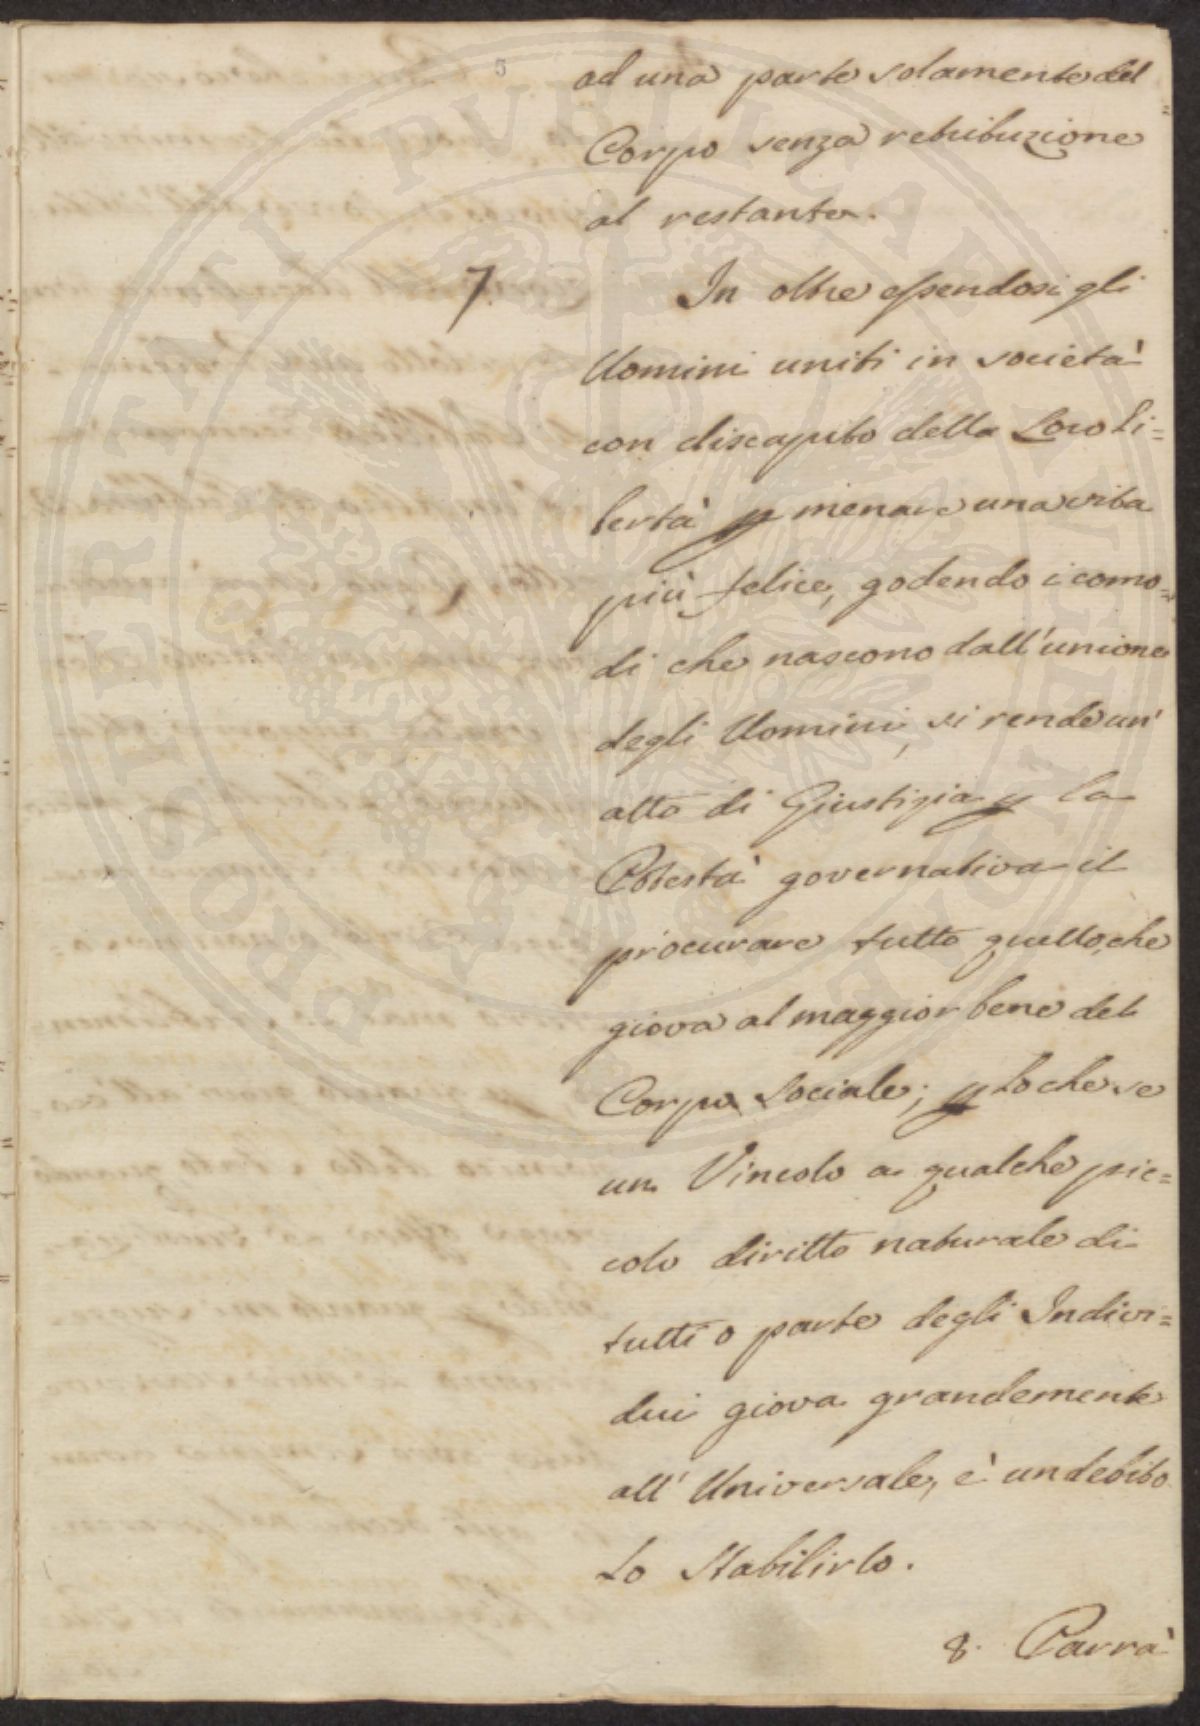 5
ad una parte solamente del
Corpo senza retribuzione
al restante.
7. In oltre essendosi gli
Uomini uniti in società
con discapito della Loro Li=
bertà p menare una vita
più felice, godendo i como=
di che nascono dall'unione
degli Uomini, si rende un'
atto di Giustizia p la
Potestà governativa il
procurare tutto quello, che
giova al maggior bene del
Corpo Sociale; p Lo che se
un Vincolo a qualche pic=
colo diritto naturale di
tutti o parte degli Indivi=
dui giova grandemente
all'Universale, è un debito
Lo Stabilirlo.
8. Parrà
PROSPERITATI PUBLICAE AUGENDAE